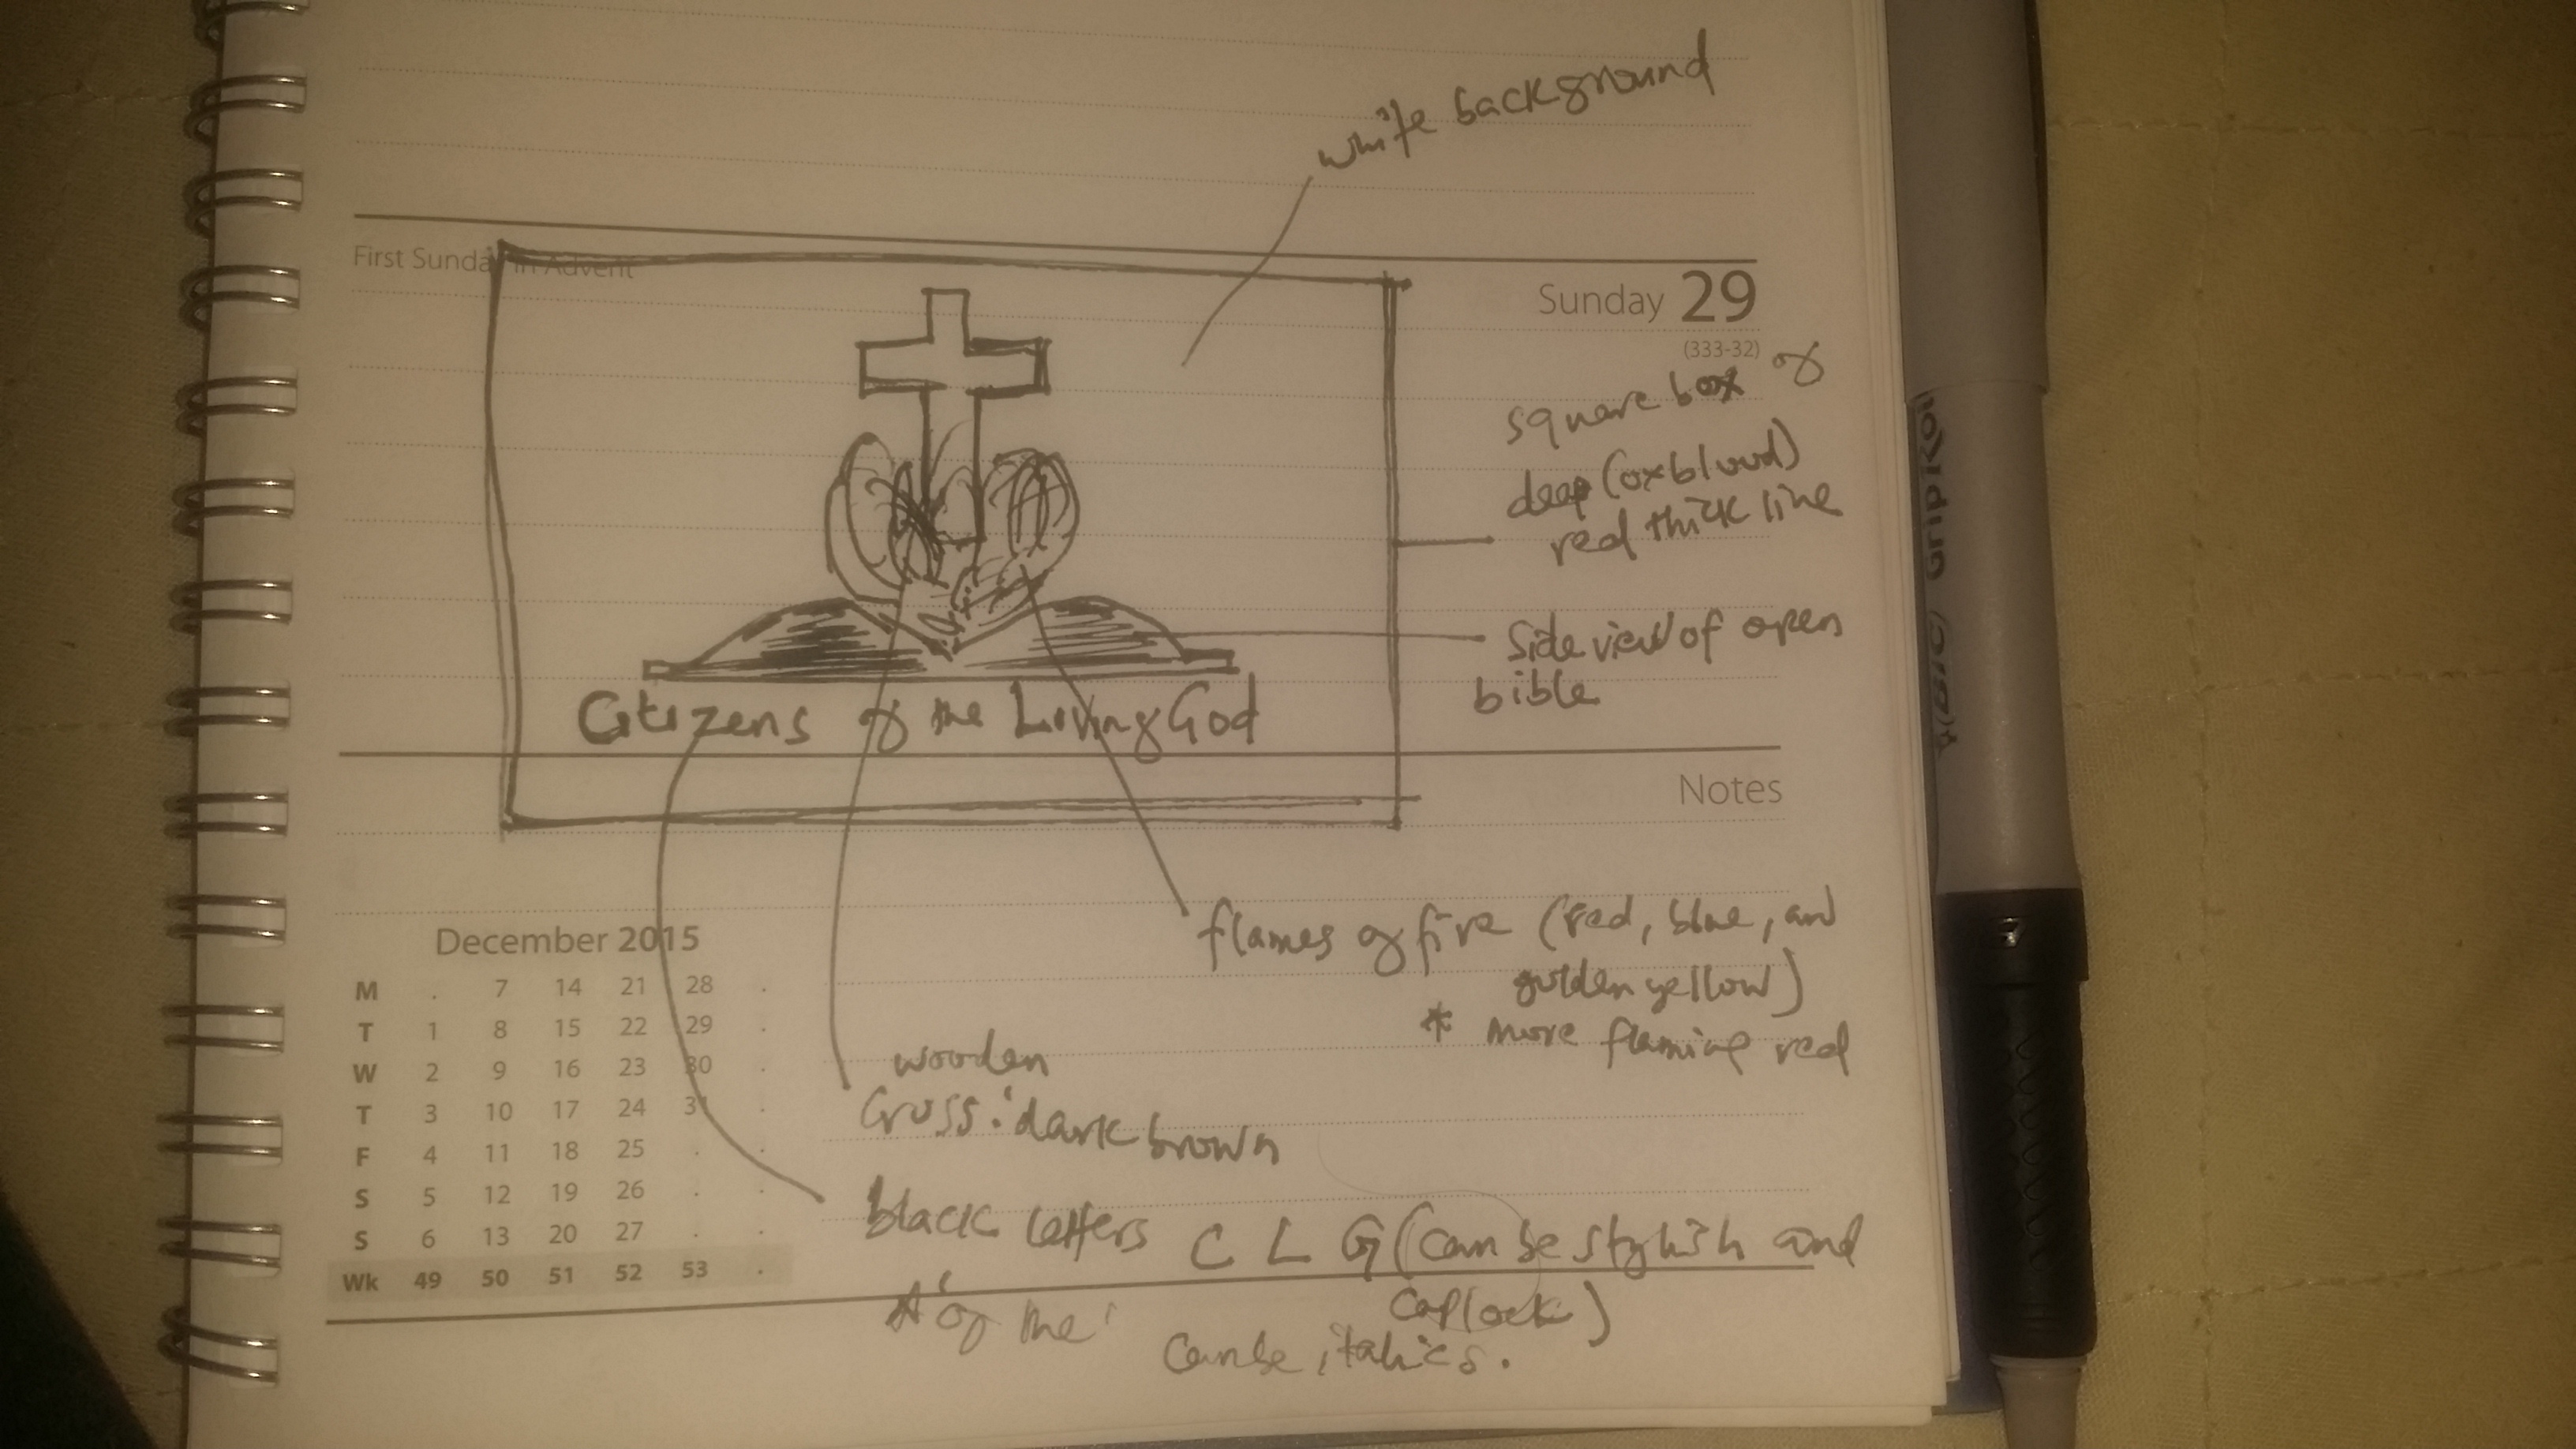 white background
First Sunday in Advent
Sunday 29
(333-32)
square box of
deep (oxblood)
red thick line
Side view of open
bible
Citizens of the Living God
Notes
flames of fire (red, blue, and
golden yellow)
* more flaming red
wooden
cross: dark brown
black letters C L G (can be stylish and
caplock)
* 'of the' can be italics.
December 2015
M . 7 14 21 28 .
T 1 8 15 22 29 .
W 2 9 16 23 30 .
T 3 10 17 24 31 .
F 4 11 18 25 . .
S 5 12 19 26 . .
S 6 13 20 27 . .
Wk 49 50 51 52 53 .
(BIC) Grip Rol